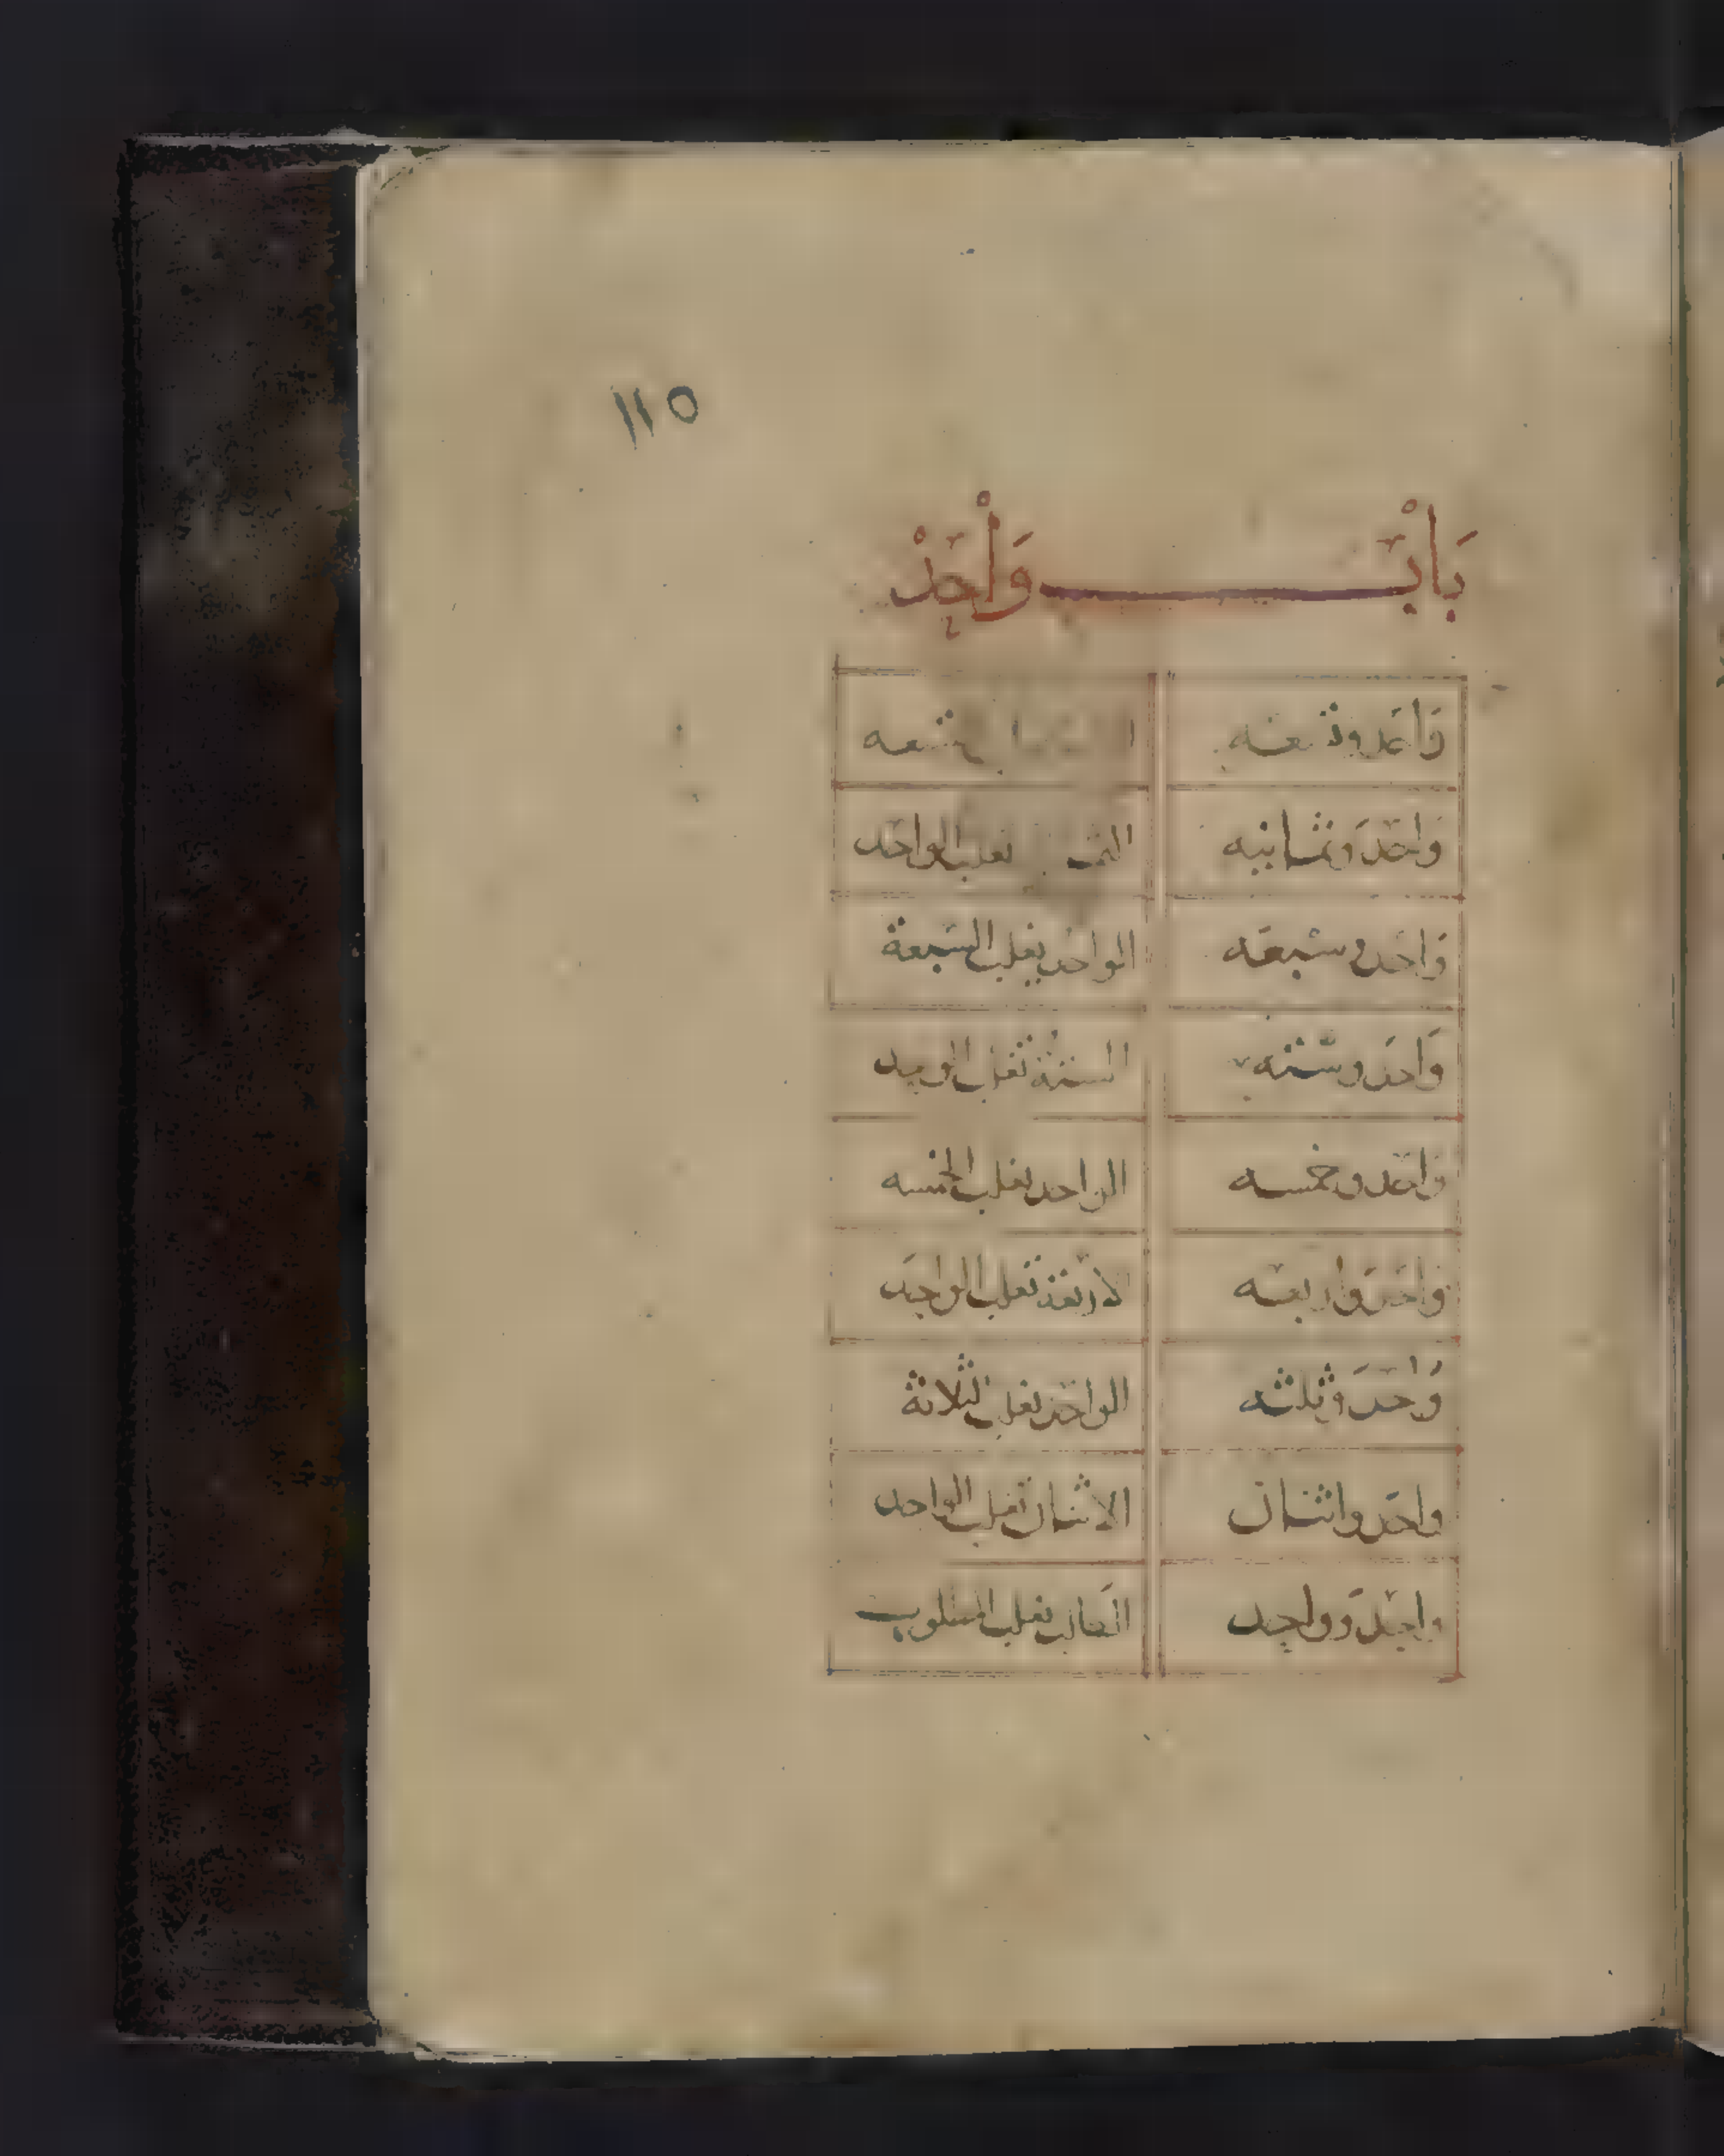 ١١٥
بَابْ وَاحِدْ
وَاحَد وتسعه تسعه
وَاحَدَ وثمانيه تغلب الواحَد
وَاحَد وسبعَه الواحد يغلب السَبعة
وَاحَد وستته الستة تغلب
وَاحَد وخمسه الواحد يغلب الخمسه
وَاحَدَ وَاربعَه الاربعة تغلب الواحِد
وَاحدَ وثلثه الواحَد يغلب الثلاثة
واحَد واثنان الاثنان تغلب الواحد
واحِدَ وواحِد الطَالب يغلب المطلوب